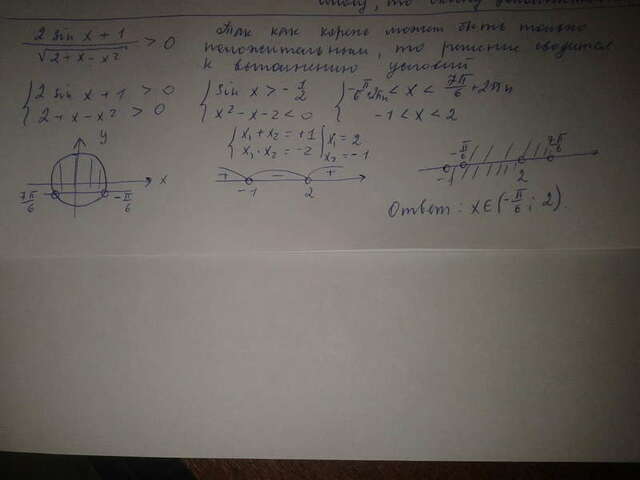 2 sin x + 1
√2 + x - x² > 0
Так как корень может быть только
положительным, то решение сводится
к выполнению условий
{ 2 sin x + 1 > 0 { sin x > - 1/2 { -π/6 + 2πn < x < 7π/6 + 2πn
{ 2 + x - x² > 0 { x² - x - 2 < 0 { -1 < x < 2
{ x₁ + x₂ = +1 | x₁ = 2
{ x₁ · x₂ = -2 | x₂ = -1
y
x
7π/6 -π/6
+ - +
-1 2
-π/6 7π/6
-1 2
Ответ: x∈(-π/6; 2).